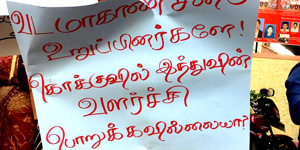 வடமாகாண சபை
உறுப்பினர்களே!
கொக்குவில் இந்துவின்
வளர்ச்சி
பொறுக்கவில்லையா?